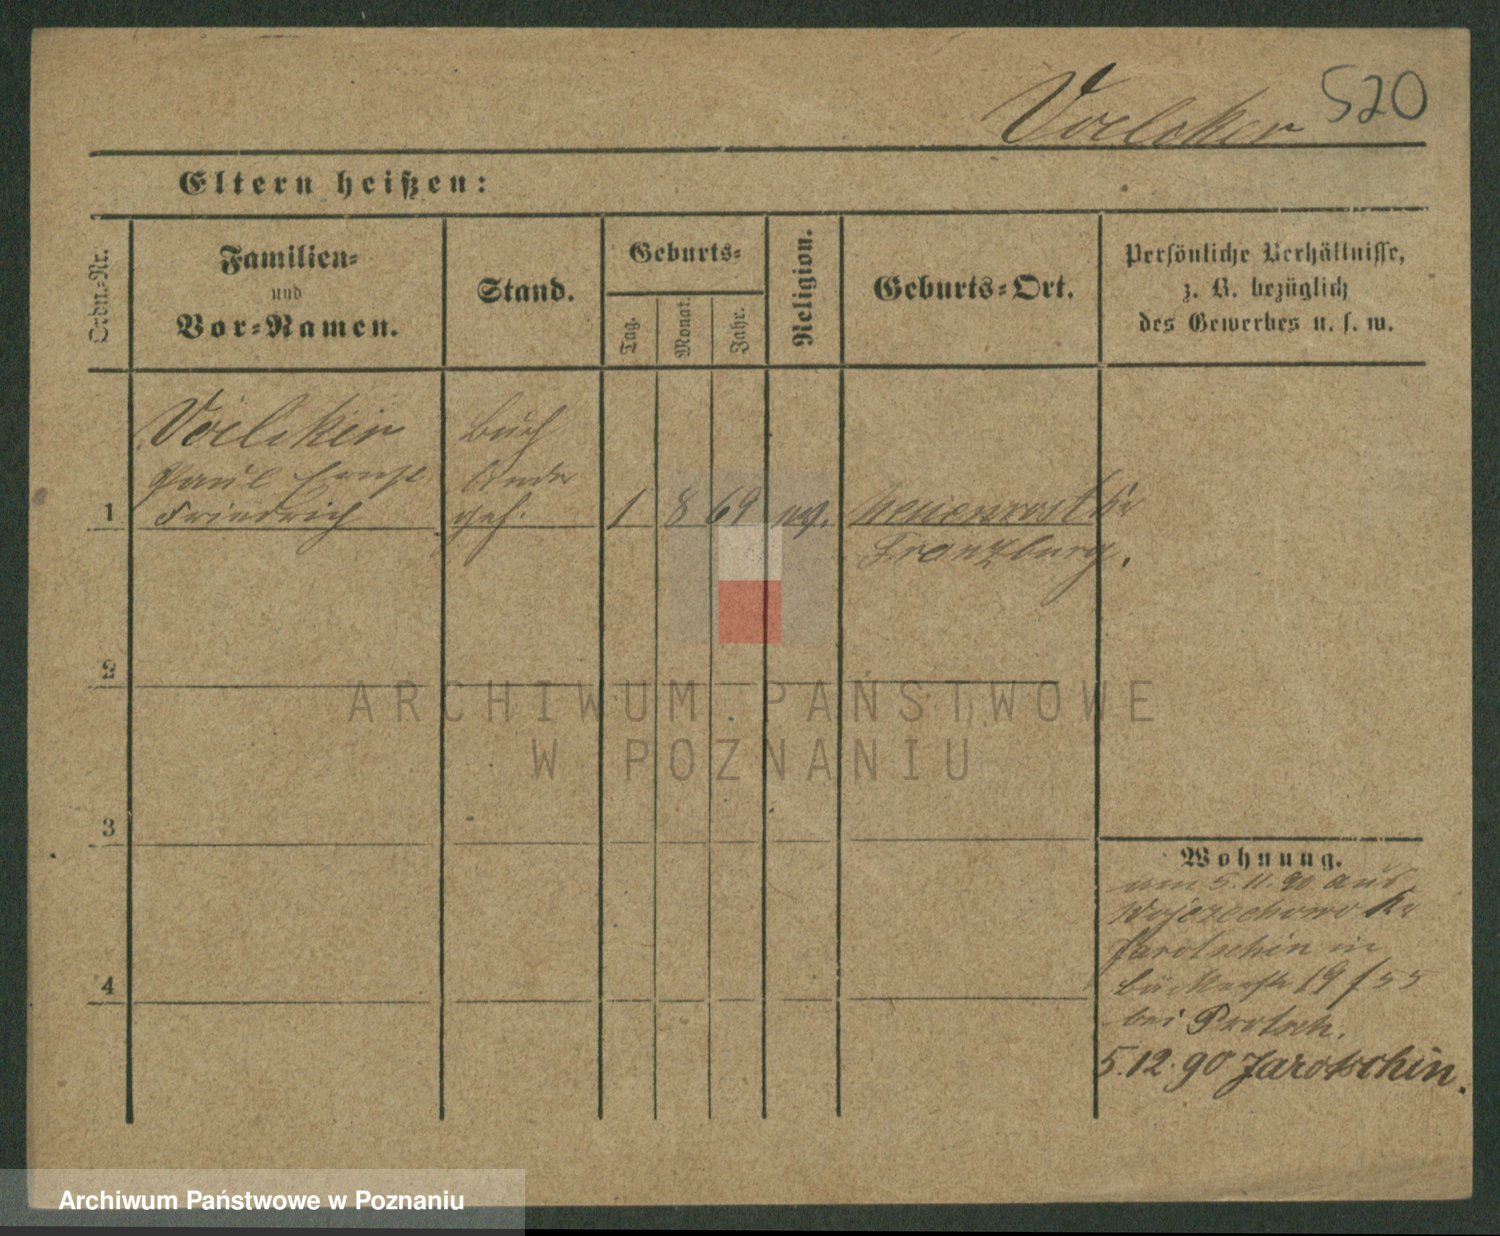 Voelcker 520
Eltern heißen:
Ordn.-Nr.
Familien-
und
Vor-Namen.
Stand.
Geburts-
Tag.
Monat.
Jahr.
Religion.
Geburts-Ort.
Persönliche Verhältnisse,
z. B. bezüglich
des Gewerbes u. s. w.
Voelcker
Paul Ernst
Friedrich
Buch
binder
geh.
1
1 8 69 ev.
Kr
Franzburg.
2
ARCHIWUM PAŃSTWOWE
W POZNANIU
3
Wohnung.
5.11.90 aus
Wojciechowo Kr
Jarotschin in
19/55
bei
5.12.90 Jarotschin.
4
Archiwum Państwowe w Poznaniu